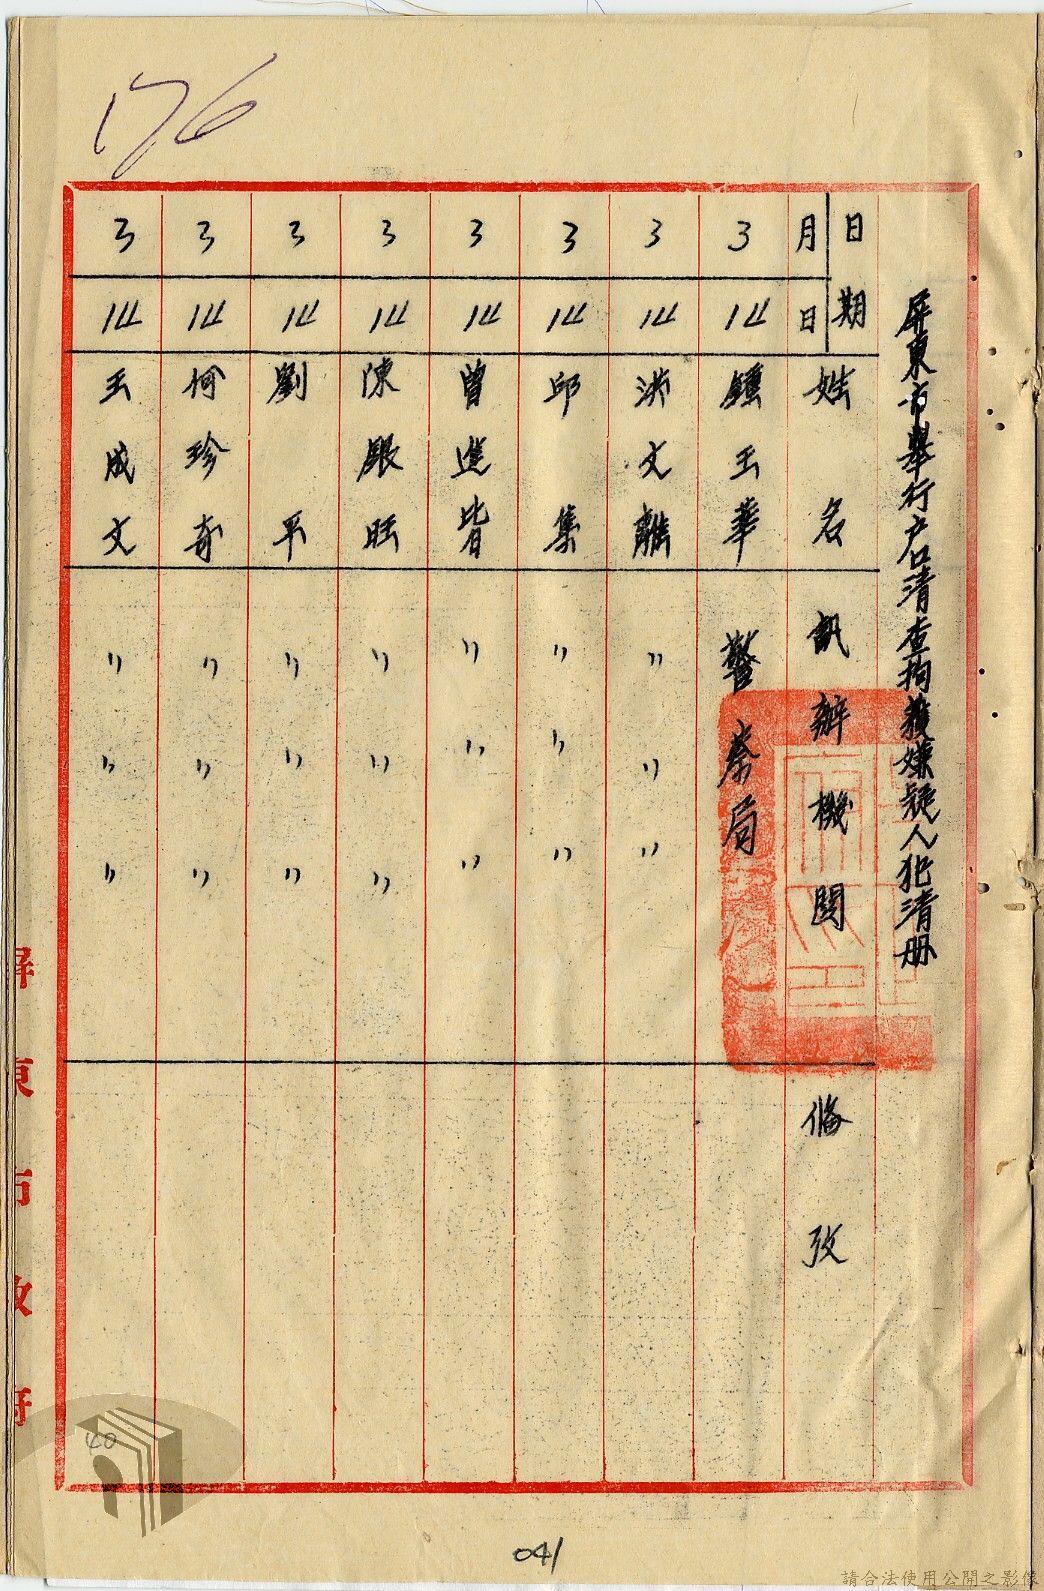 176
屏東市舉行户口清查拘獲嫌疑人犯清册
日期
月
日
姓名
訊辦機関
俻攷
3
14
鍾玉華
警察局
3
14
洪文離
〃〃〃
3
14
邱集
〃〃〃
3
14
曽進皆
〃〃〃
3
14
陳銀旺
〃〃〃
3
14
劉平
〃〃〃
3
14
柯珍奇
〃〃〃
3
14
王成文
〃〃〃
屏東市政府
40
041
請合法使用公開之影像